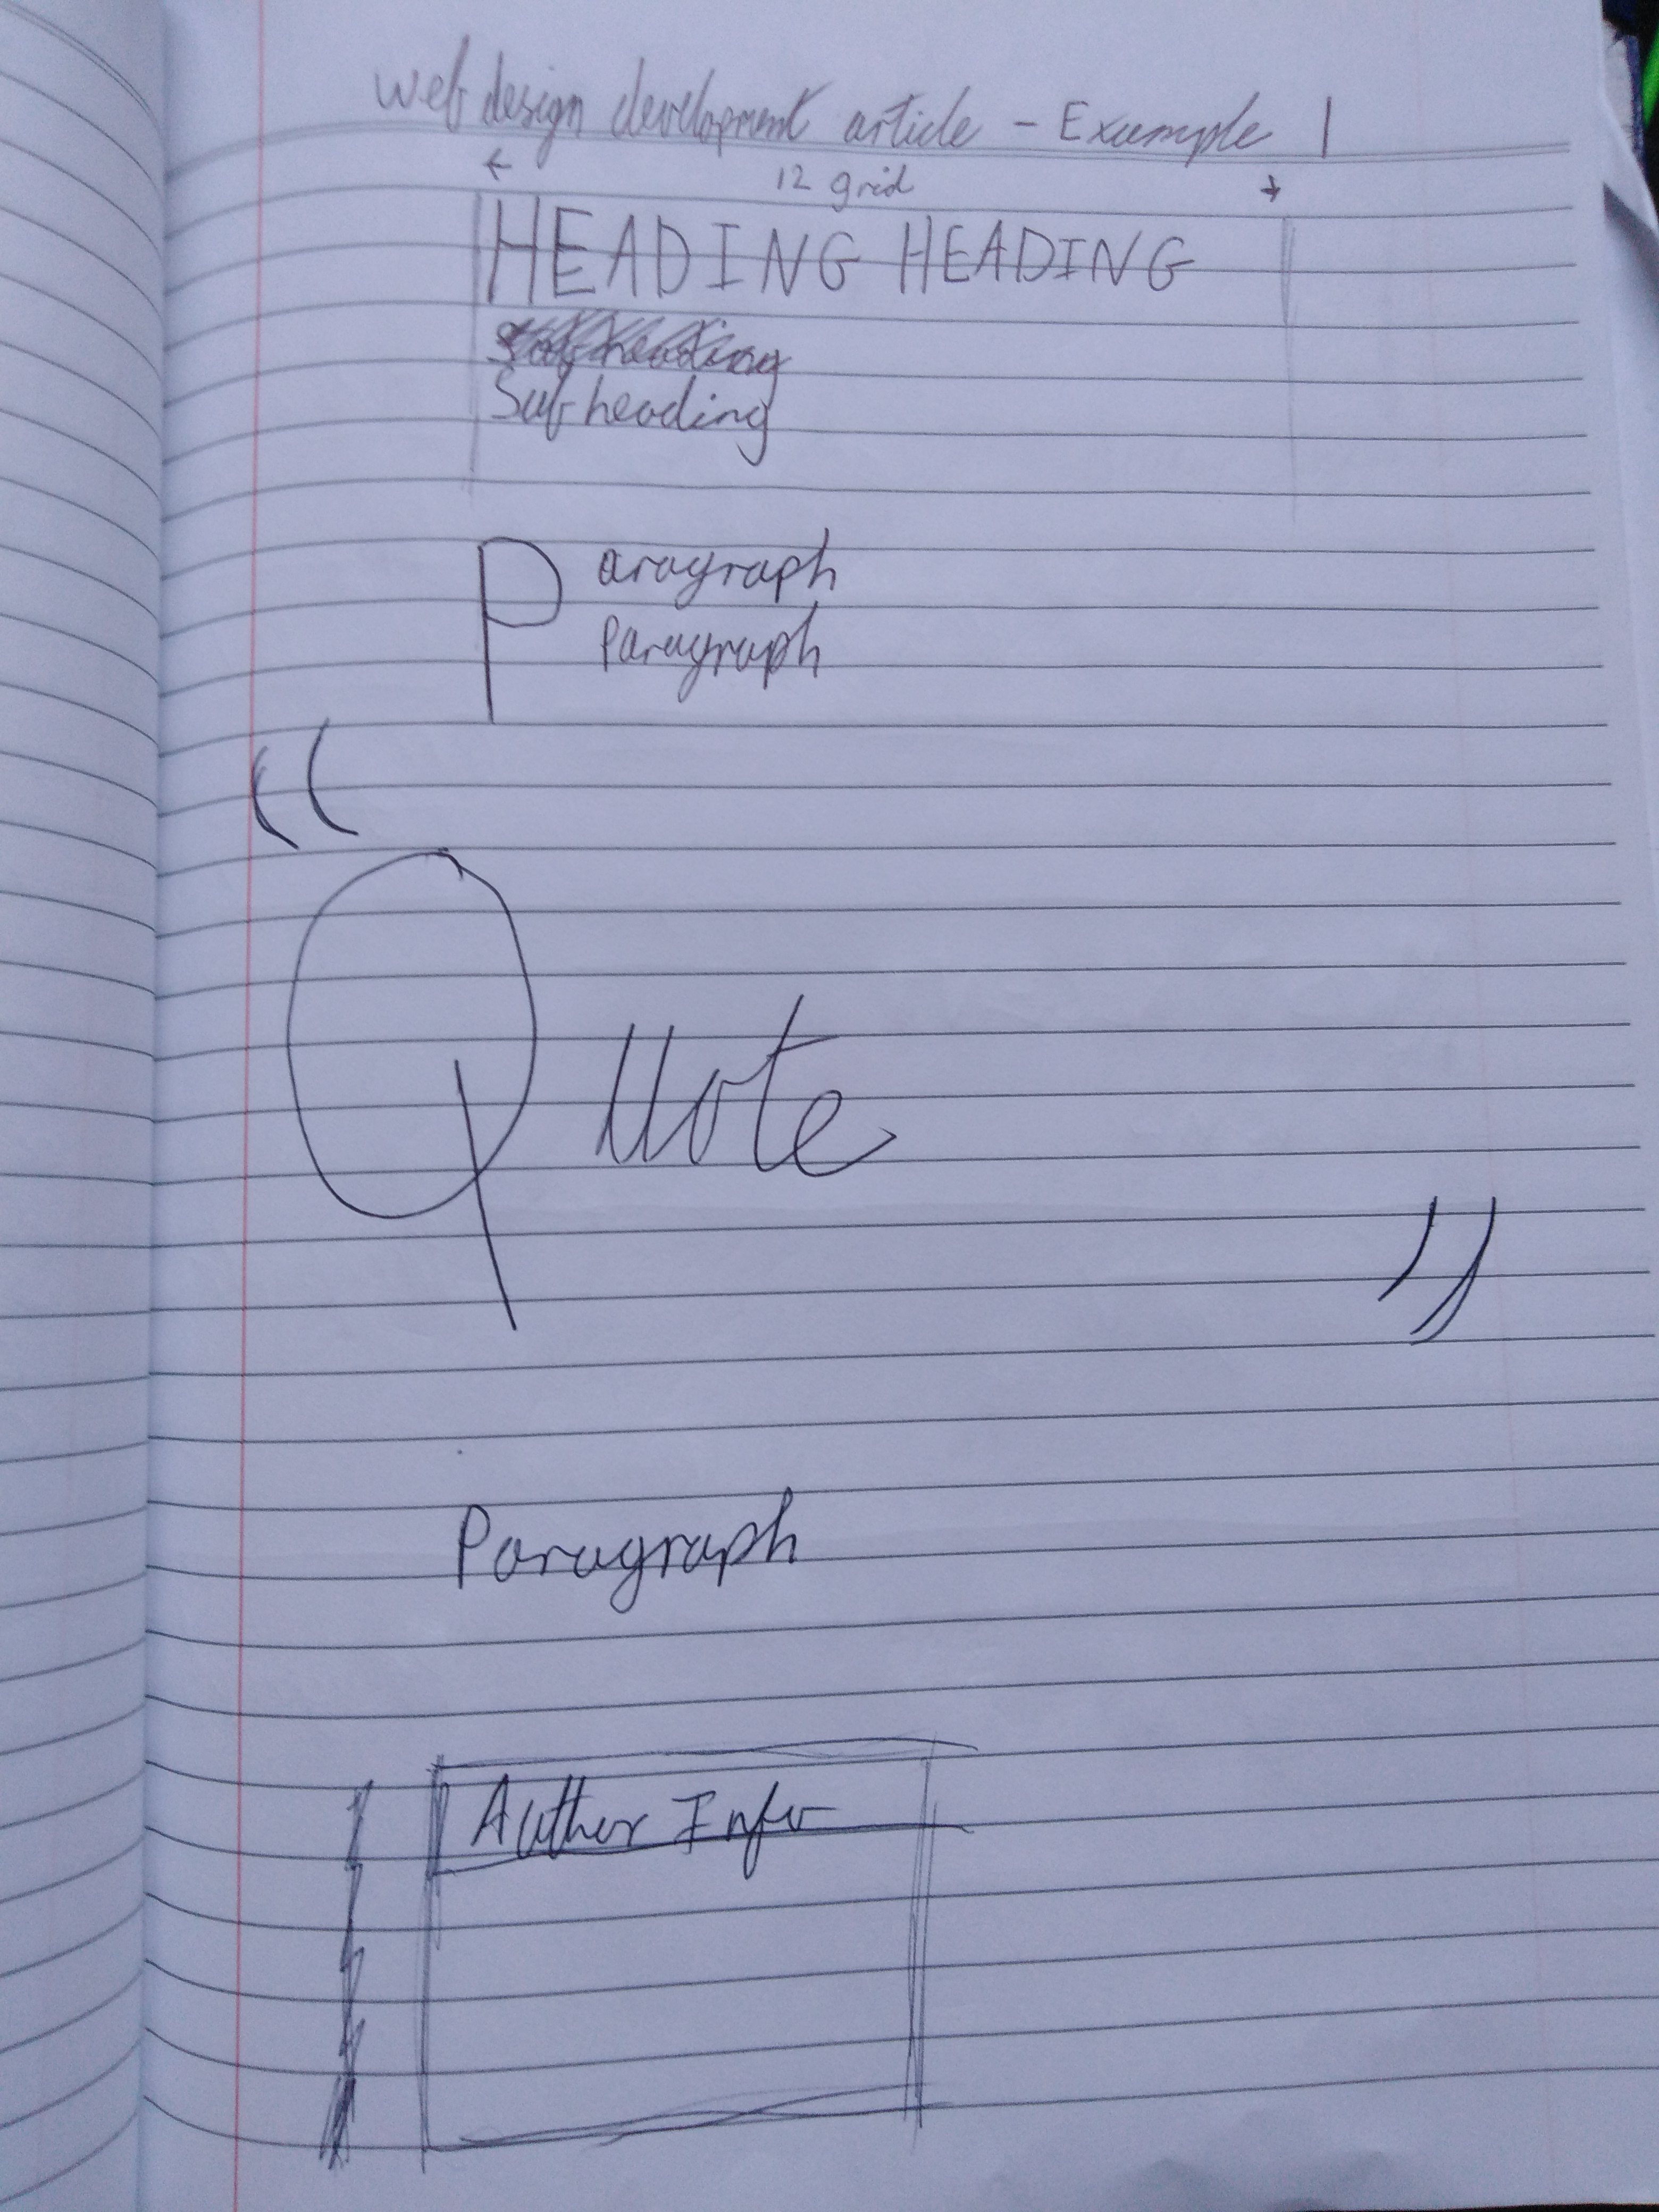 web design development article - Example 1
12 grid
HEADING HEADING
Subheading
Subheading
Paragraph
Paragraph
“
Quote
”
Paragraph
Author Info